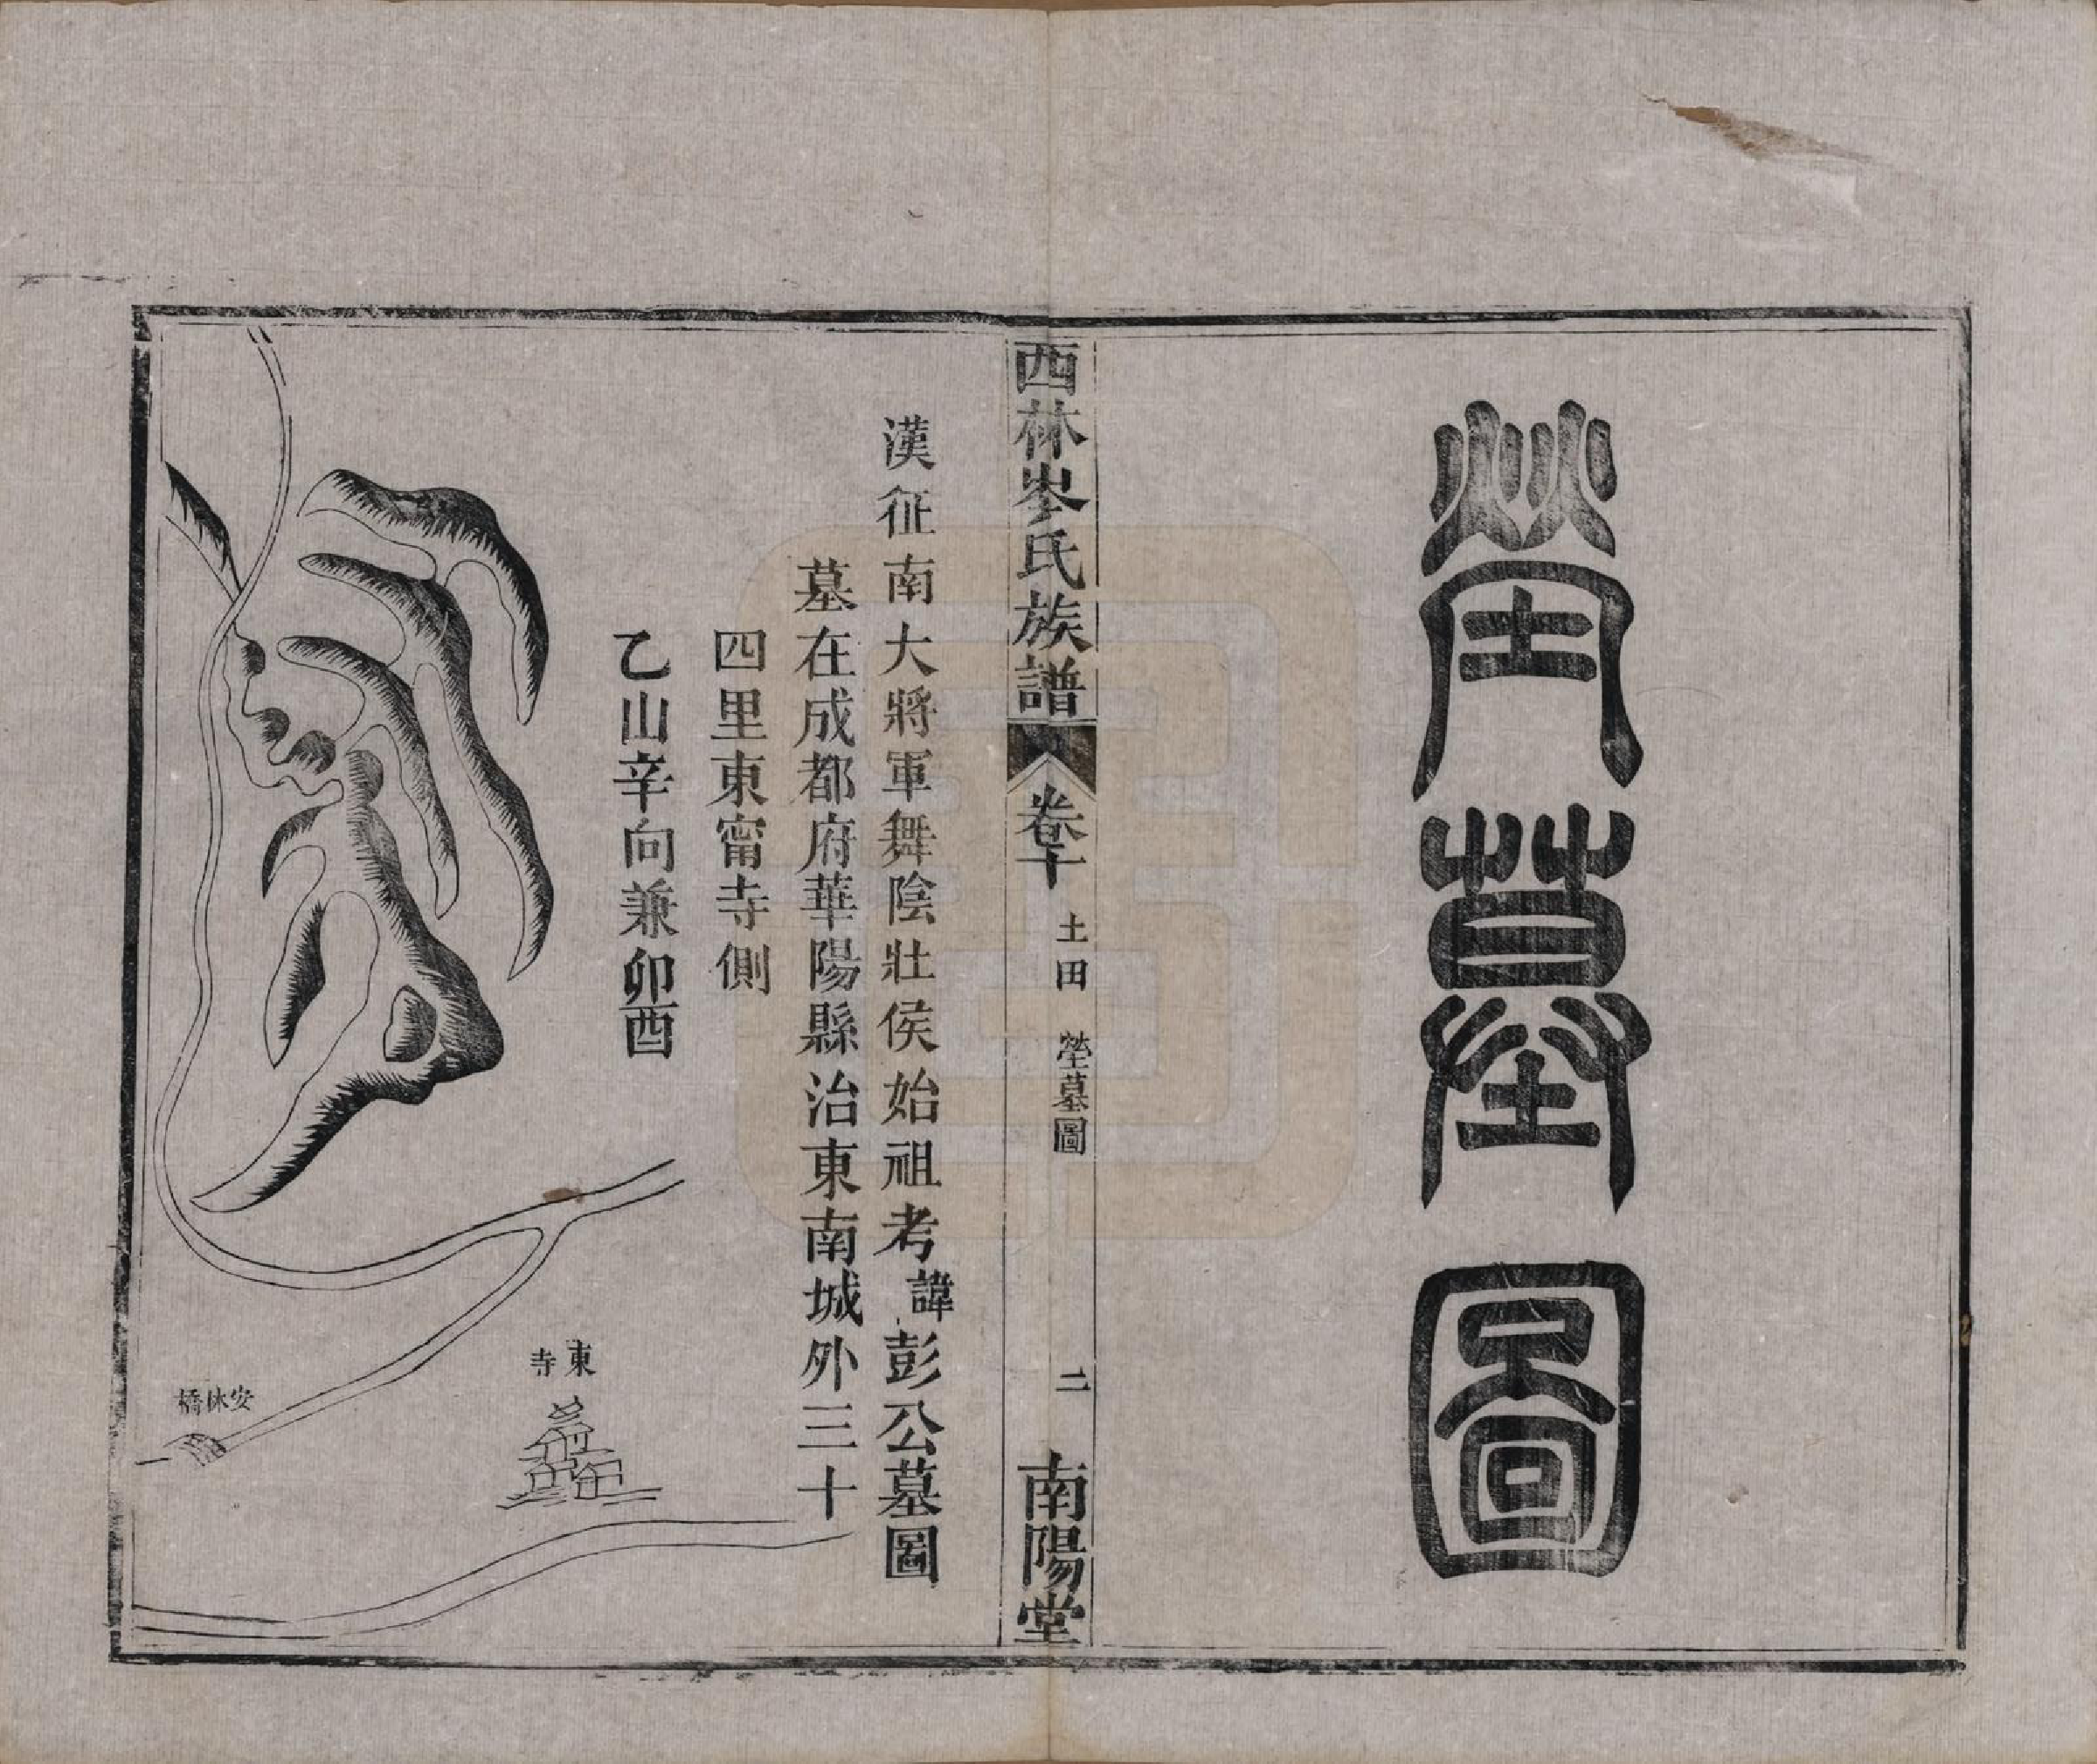 塋墓圖
西林岑氏族譜
卷十
土田 塋墓圖
二
南陽堂
漢征南大將軍舞陰壯侯始祖考諱彭公墓圖
墓在成都府華陽縣治東南城外三十
四里東甯寺側
乙山辛向兼卯酉
東寺
安休橋